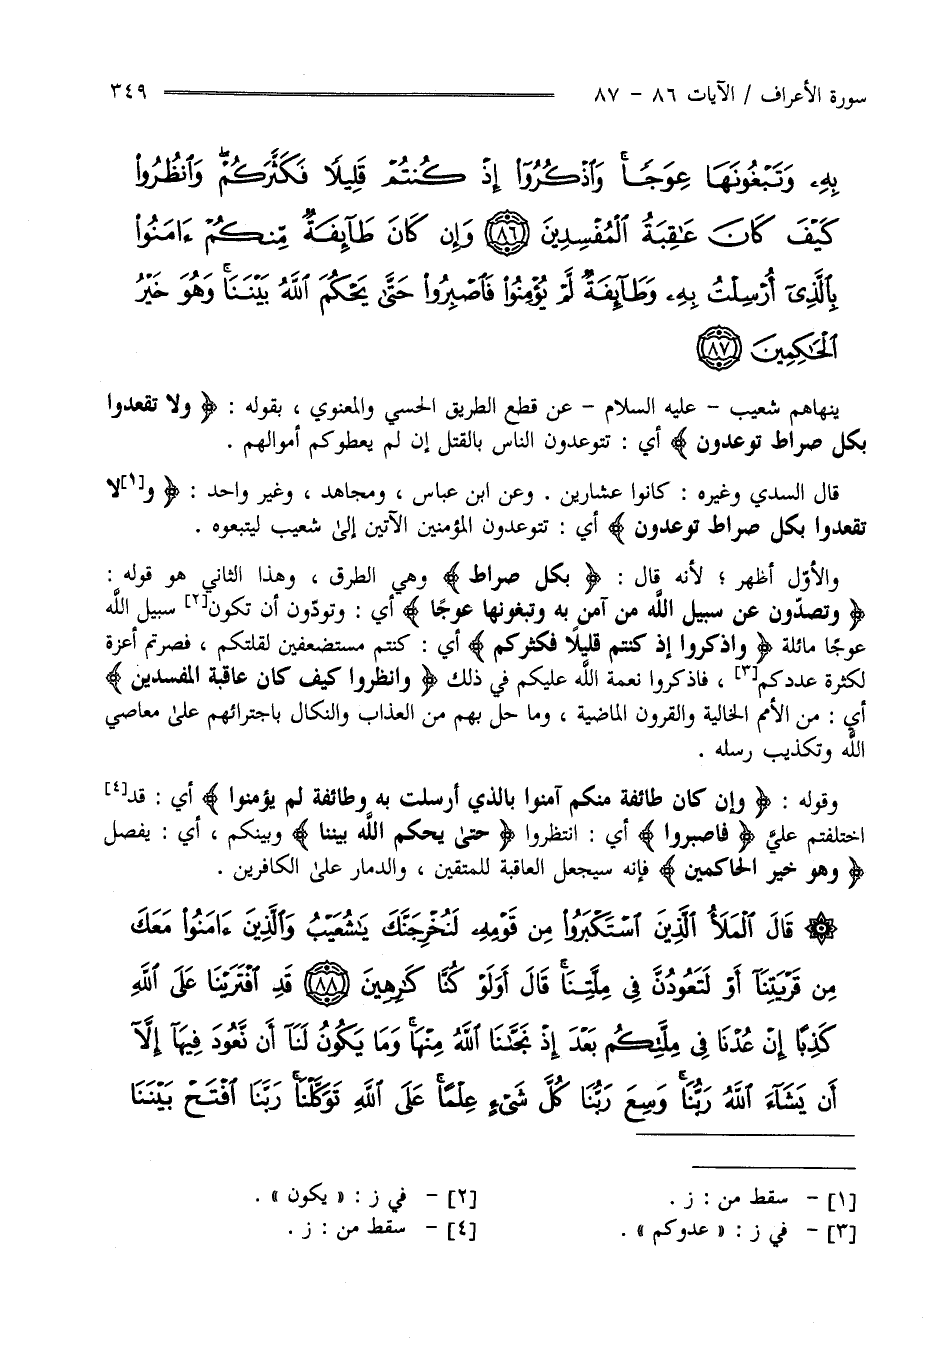 سورة الأعراف / الآيات ٨٦ - ٨٧ ٣٤٩
بِهِۦ وَتَبْغُونَهَا عِوَجًاۚ وَٱذْكُرُوٓا۟ إِذْ كُنتُمْ قَلِيلًا فَكَثَّرَكُمْۖ وَٱنظُرُوا۟
كَيْفَ كَانَ عَٰقِبَةُ ٱلْمُفْسِدِينَ ﴿٨٦﴾ وَإِن كَانَ طَآئِفَةٌ مِّنكُمْ ءَامَنُوا۟
بِٱلَّذِىٓ أُرْسِلْتُ بِهِۦ وَطَآئِفَةٌ لَّمْ يُؤْمِنُوا۟ فَٱصْبِرُوا۟ حَتَّىٰ يَحْكُمَ ٱللَّهُ بَيْنَنَاۚ وَهُوَ خَيْرُ
ٱلْحَٰكِمِينَ ﴿٨٧﴾
ينهاهم شعيب - عليه السلام - عن قطع الطريق الحسي والمعنوي ، بقوله : ﴿ ولا تقعدوا
بكل صراط توعدون ﴾ أي : تتوعدون الناس بالقتل إن لم يعطوكم أموالهم .
قال السدي وغيره : كانوا عشارين . وعن ابن عباس ، ومجاهد ، وغير واحد : ﴿ و[١]لا
تقعدوا بكل صراط توعدون ﴾ أي : تتوعدون المؤمنين الآتين إلىٰ شعيب ليتبعوه .
والأوّل أظهر ؛ لأنه قال : ﴿ بكل صراط ﴾ وهي الطرق ، وهذا الثاني هو قوله :
﴿ وتصدّون عن سبيل اللَّه من آمن به وتبغونها عوجًا ﴾ أي : وتودّون أن تكون[٢] سبيل اللَّه
عوجًا مائلة ﴿ واذكروا إذ كنتم قليلًا فكثركم ﴾ أي : كنتم مستضعفين لقلتكم ، فصرتم أعزة
لكثرة عددكم[٣] ، فاذكروا نعمة اللَّه عليكم في ذلك ﴿ وانظروا كيف كان عاقبة المفسدين ﴾
أي : من الأمم الخالية والقرون الماضية ، وما حل بهم من العذاب والنكال باجترائهم علىٰ معاصي
اللَّه وتكذيب رسله .
وقوله : ﴿ وإن كان طائفة منكم آمنوا بالذي أرسلت به وطائفة لم يؤمنوا ﴾ أي : قد[٤]
اختلفتم عليَّ ﴿ فاصبروا ﴾ أي : انتظروا ﴿ حتىٰ يحكم اللَّه بيننا ﴾ وبينكم ، أي : يفصل
﴿ وهو خير الحاكمين ﴾ فإنه سيجعل العاقبة للمتقين ، والدمار علىٰ الكافرين .
۞ قَالَ ٱلْمَلَأُ ٱلَّذِينَ ٱسْتَكْبَرُوا۟ مِن قَوْمِهِۦ لَنُخْرِجَنَّكَ يَٰشُعَيْبُ وَٱلَّذِينَ ءَامَنُوا۟ مَعَكَ
مِن قَرْيَتِنَآ أَوْ لَتَعُودُنَّ فِى مِلَّتِنَاۚ قَالَ أَوَلَوْ كُنَّا كَٰرِهِينَ ﴿٨٨﴾ قَدِ ٱفْتَرَيْنَا عَلَى ٱللَّهِ
كَذِبًا إِنْ عُدْنَا فِى مِلَّتِكُم بَعْدَ إِذْ نَجَّىٰنَا ٱللَّهُ مِنْهَاۚ وَمَا يَكُونُ لَنَآ أَن نَّعُودَ فِيهَآ إِلَّآ
أَن يَشَآءَ ٱللَّهُ رَبُّنَاۚ وَسِعَ رَبُّنَا كُلَّ شَىْءٍ عِلْمًاۚ عَلَى ٱللَّهِ تَوَكَّلْنَاۚ رَبَّنَا ٱفْتَحْ بَيْنَنَا
[١] - سقط من : ز . [٢] - في ز : « يكون » .
[٣] - في ز : « عدوكم » . [٤] - سقط من : ز .